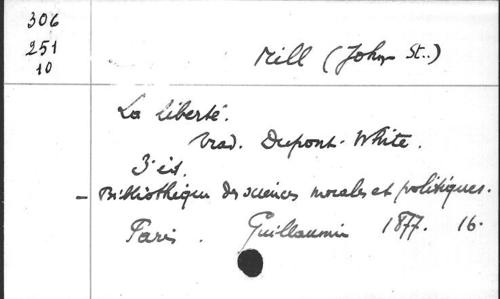 306
251
10
Mill (John St..)
La liberté.
trad. Dupont-White.
3e éd.
- Bibliothèque des sciences morales et politiques.
Paris. Guillaumin 1877. 16.